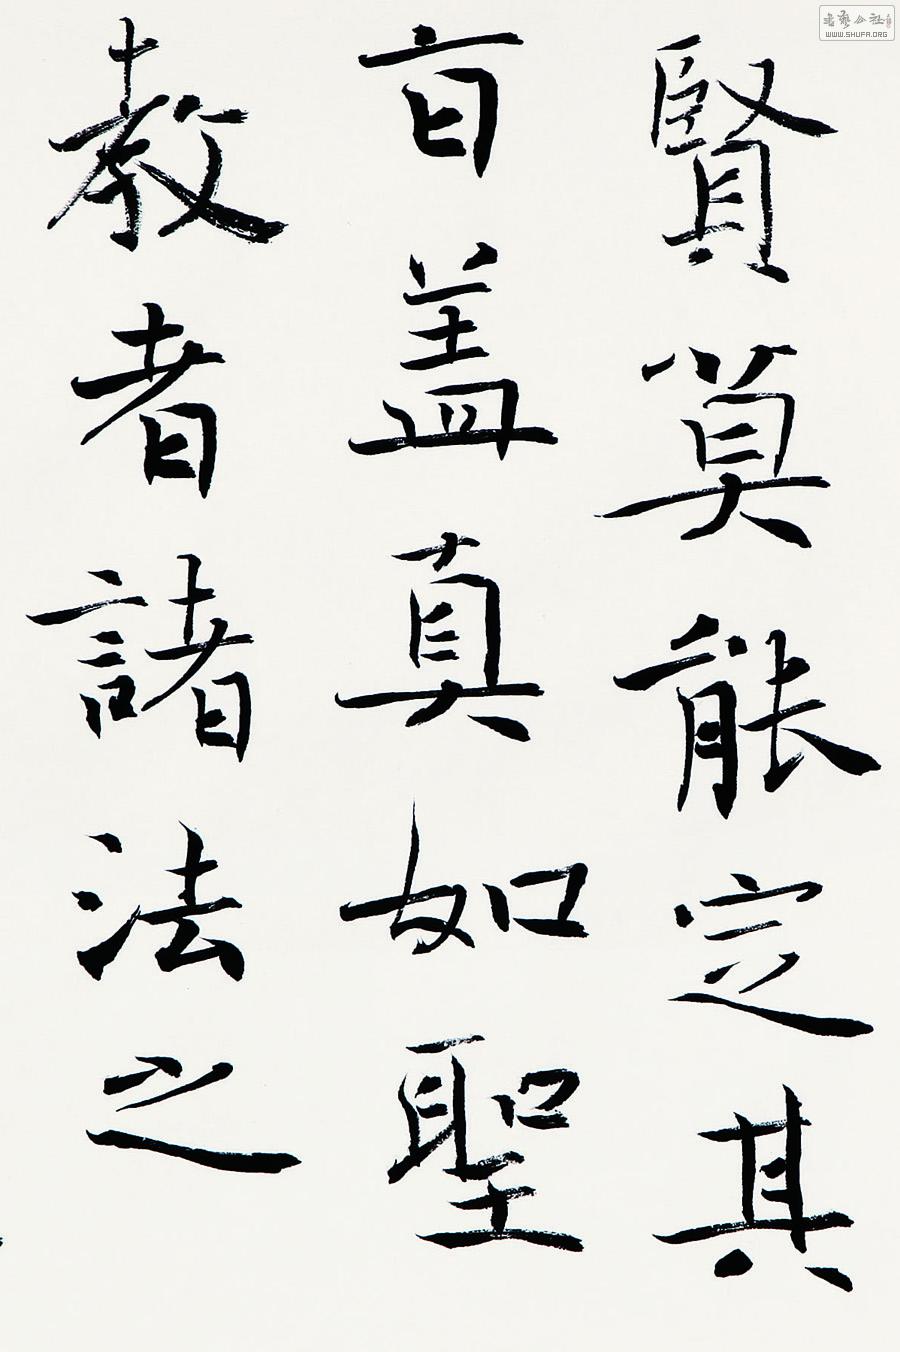 賢莫能定其
旨盖真如聖
教者諸法之
WWW.SHUFA.ORG